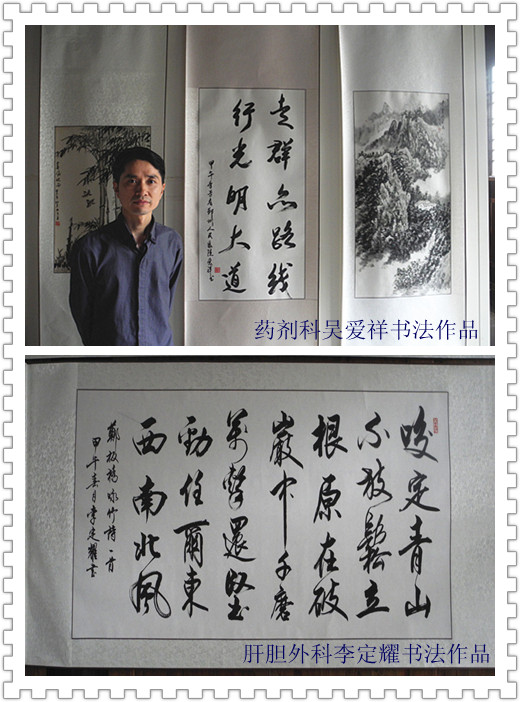 走群众路线
行光明大道
甲午春
药剂科吴爱祥书法作品
咬定青山
不放鬆立
根原在破
巖中千磨
萬擊還堅
勁任爾東
西南北風
鄭板橋咏竹诗一首
甲午春月李定耀书
肝胆外科李定耀书法作品